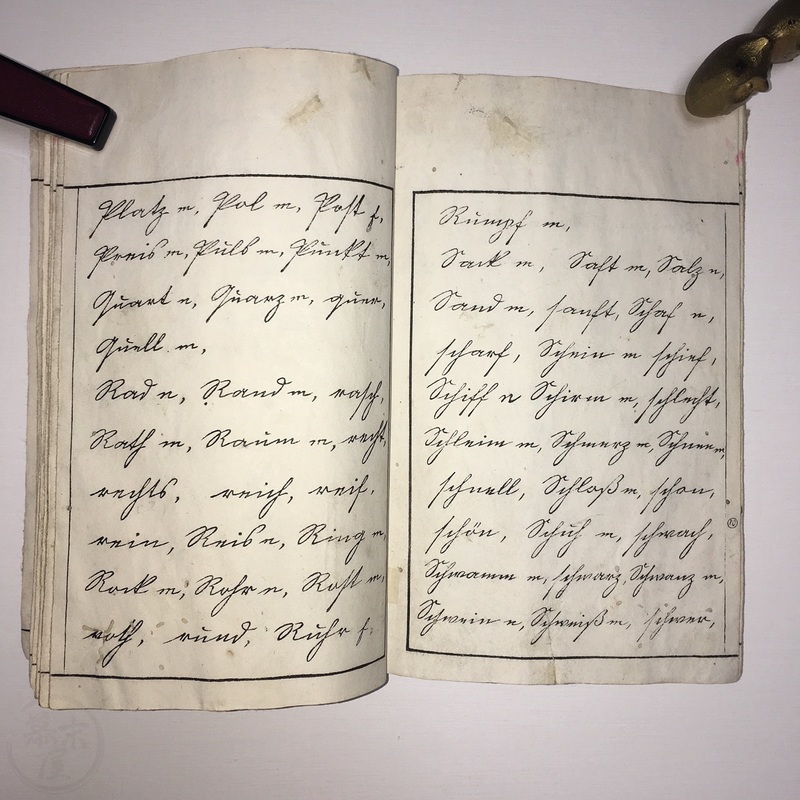 Platz m, Pol m, Post f,
Preis m, Puls m, Punkt m,
Quart n, Quarz m, quer,
Quell m,
Rad n, Rand m, rasch,
Rath m, Raum m, recht,
rechts, reich, reif,
rein, Reis n, Ring m,
Rock m, Rohr n, Rost m,
roth, rund, Ruhr f.
Rumpf m,
Sack m, Saft m, Salz n,
Sand m, sanft, Schaf n,
scharf, Schein m schief,
Schiff n Schirm m, schlecht,
Schleim m, Schmerz m, Schnee m,
schnell, Schloß n, schon,
schön, Schuh m, schwach,
Schwamm m, schwarz, Schwanz m,
Schwein n, Schweiß m, schwer,